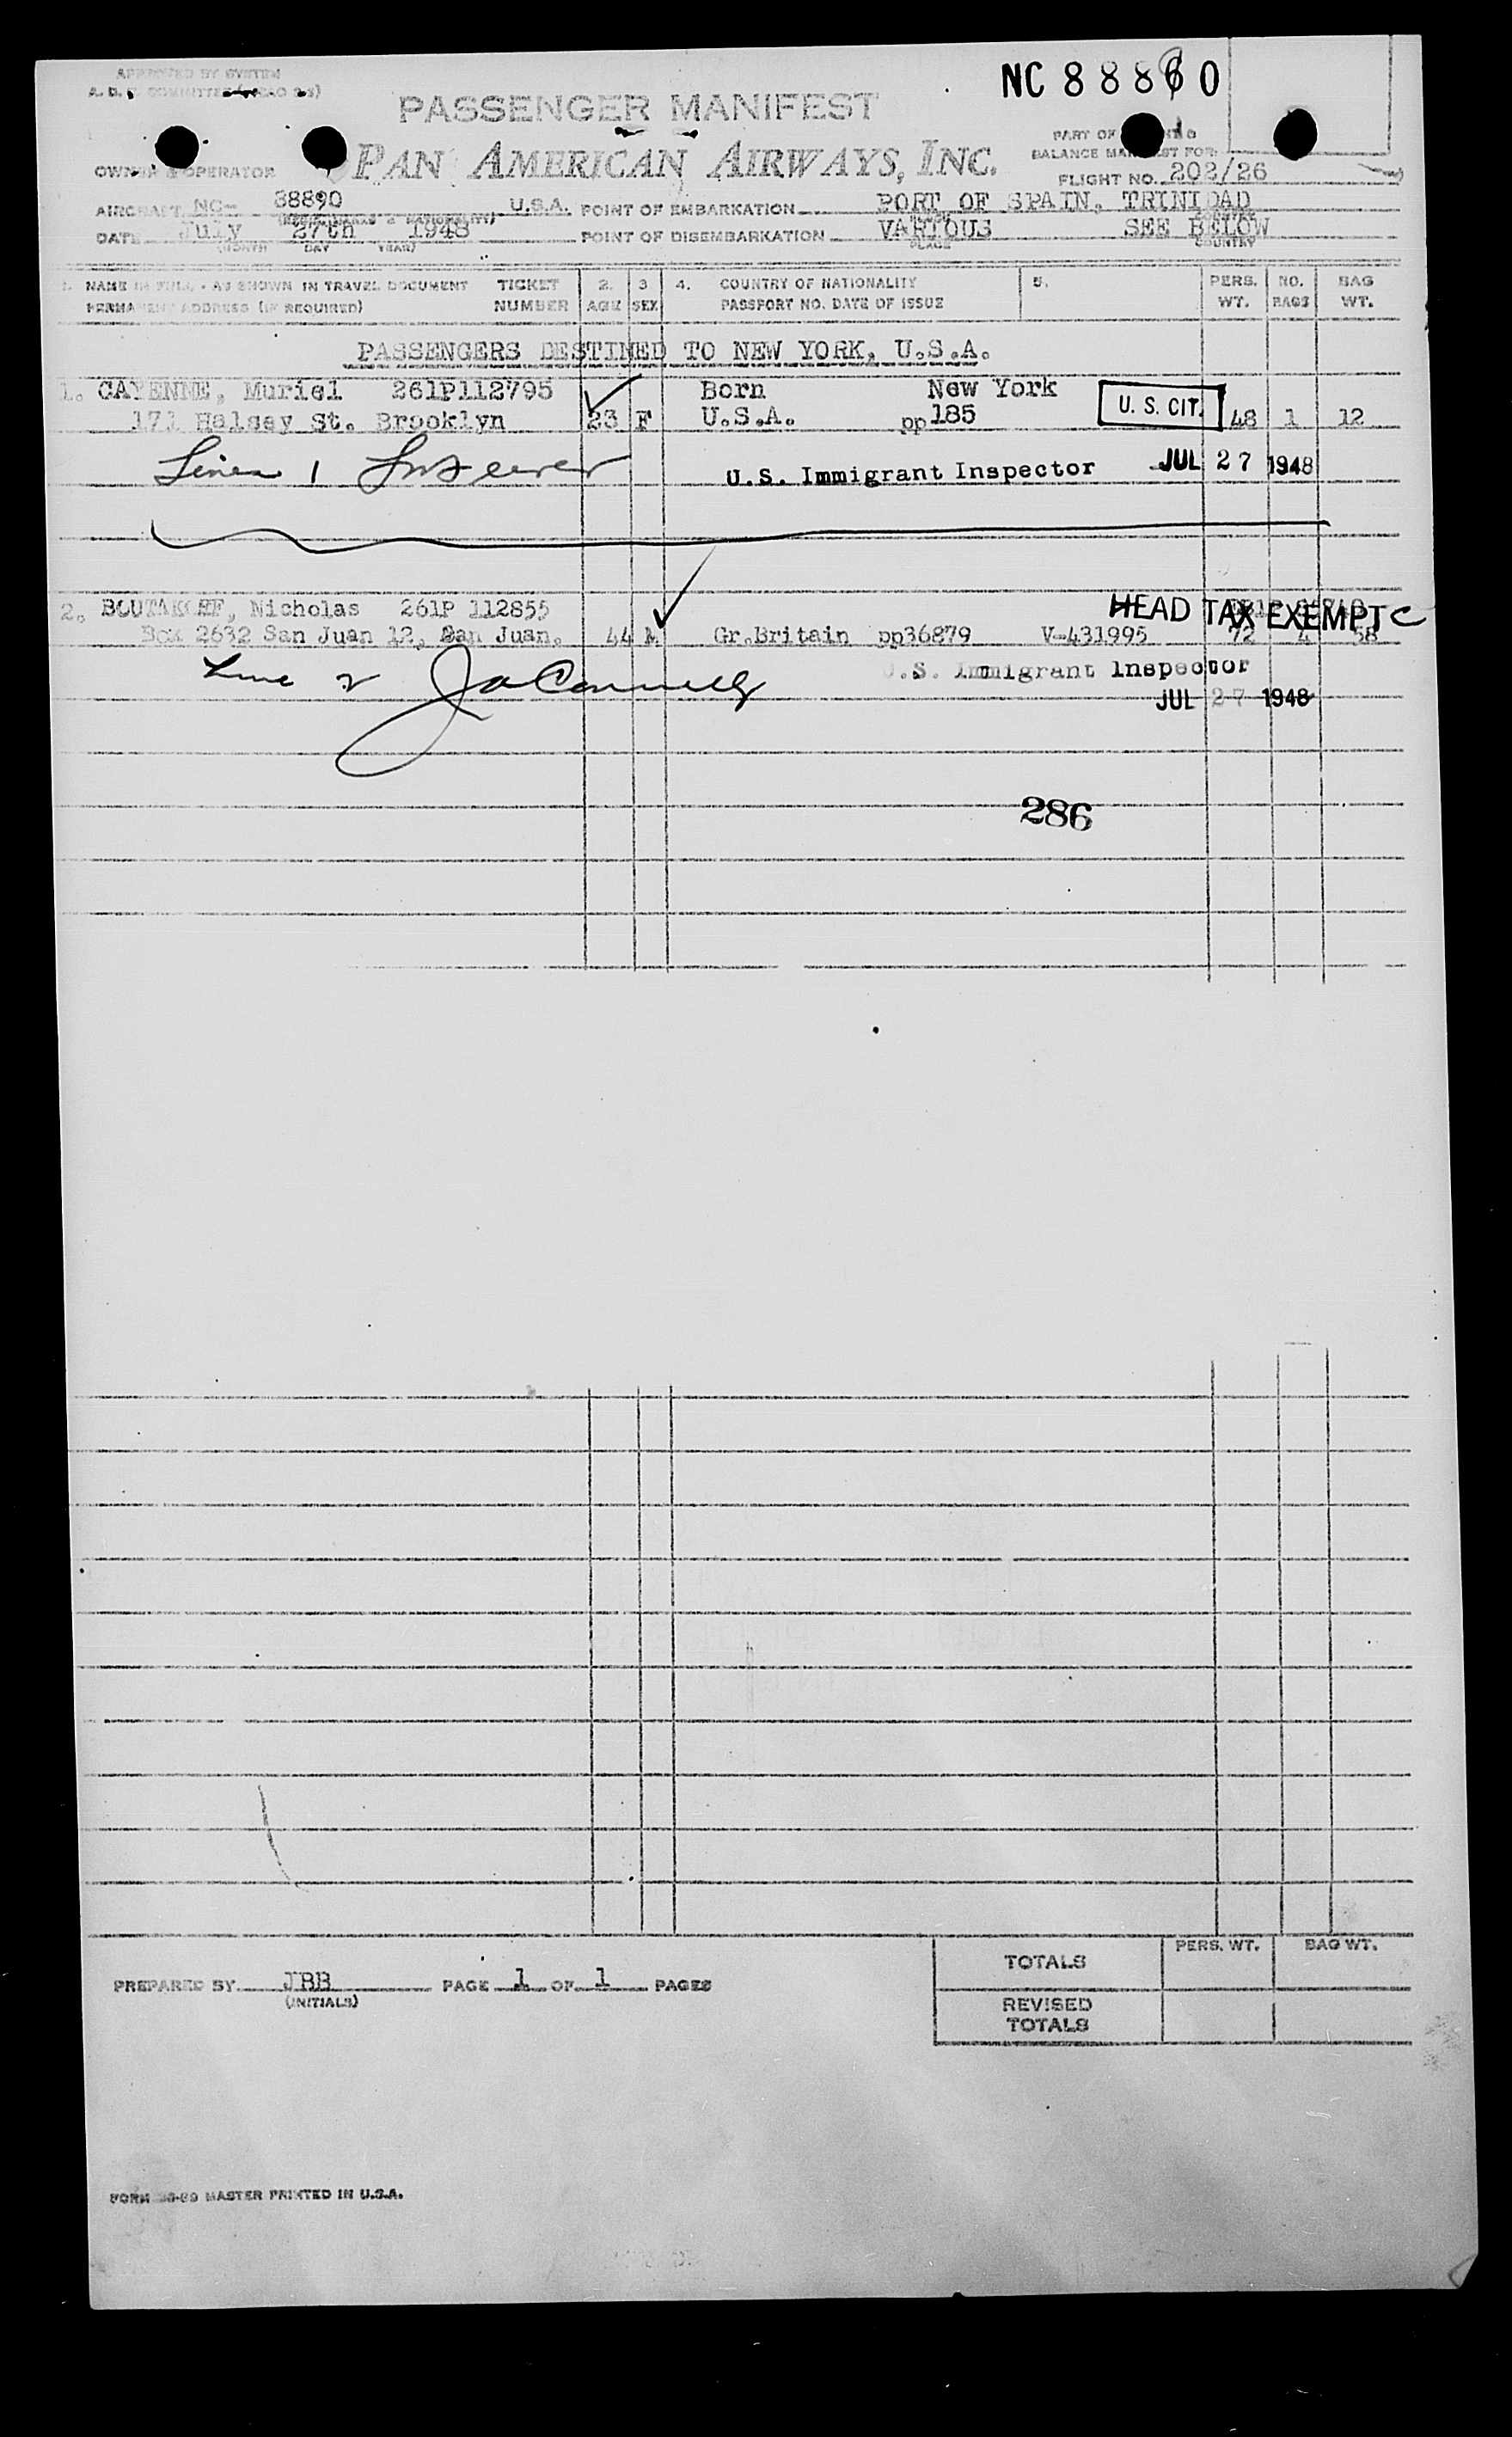 APPROVED BY SYSTEM
NC 88860
PASSENGER MANIFEST
PART OF
OWNER & OPERATOR PAN AMERICAN AIRWAYS, INC. BALANCE MANIFEST FOR
FLIGHT NO. 202/26
AIRCRAFT NC- 88890 U.S.A. POINT OF EMBARKATION PORT OF SPAIN, TRINIDAD
DATE July 27th 1948 POINT OF DISEMBARKATION VARIOUS SEE BELOW
(MONTH DAY YEAR) PLACE COUNTRY
1. NAME IN FULL - AS SHOWN IN TRAVEL DOCUMENT TICKET 2. 3 4. COUNTRY OF NATIONALITY 5. PERS. NO. BAG
PERMANENT ADDRESS (IF REQUIRED) NUMBER AGE SEX PASSPORT NO. DATE OF ISSUE WT. BAGS WT.
PASSENGERS DESTINED TO NEW YORK, U.S.A.
1. CAYENNE, Muriel 261P112795 Born New York
171 Halsey St. Brooklyn 23 F U.S.A. pp 185 U. S. CIT. 48 1 12
Line 1 U.S. Immigrant Inspector JUL 27 1948
2. BOUTAKOFF, Nicholas 261P 112855 HEAD TAX EXEMPT C
Box 2632 San Juan 12, San Juan. 44 M Gr.Britain pp36879 V-431995 72 4 58
Line 2 U.S. Immigrant Inspector
JUL 27 1948
286
PREPARED BY JBB PAGE 1 OF 1 PAGES
(INITIALS)
TOTALS PERS. WT. BAG WT.
REVISED
TOTALS
FORM MASTER PRINTED IN U.S.A.